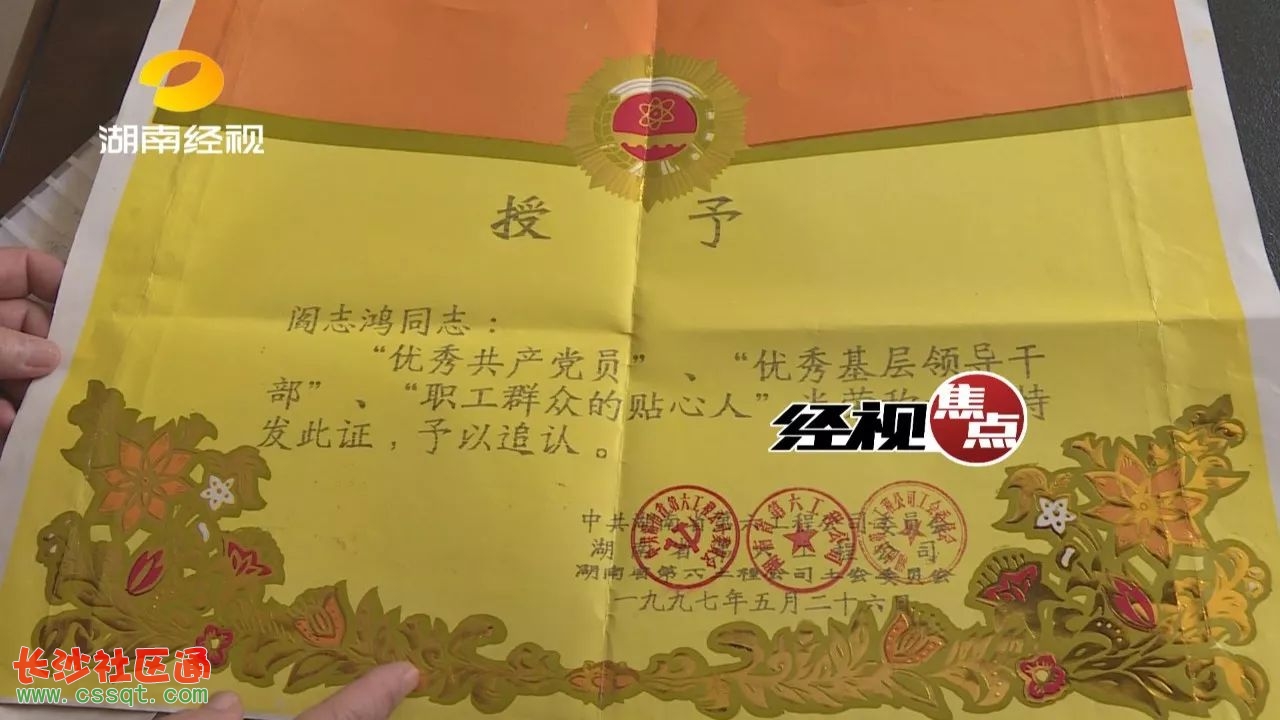 湖南经视
授予
阎志鸿同志：
“优秀共产党员”、“优秀基层领导干
部”、“职工群众的贴心人” 特
发此证，予以追认。
经视
焦点
中共湖南省第六工程公司委员会
湖南省第六工程公司
湖南省第六工程公司工会委员会
一九九七年五月二十六日
长沙社区通
www.cssqt.com